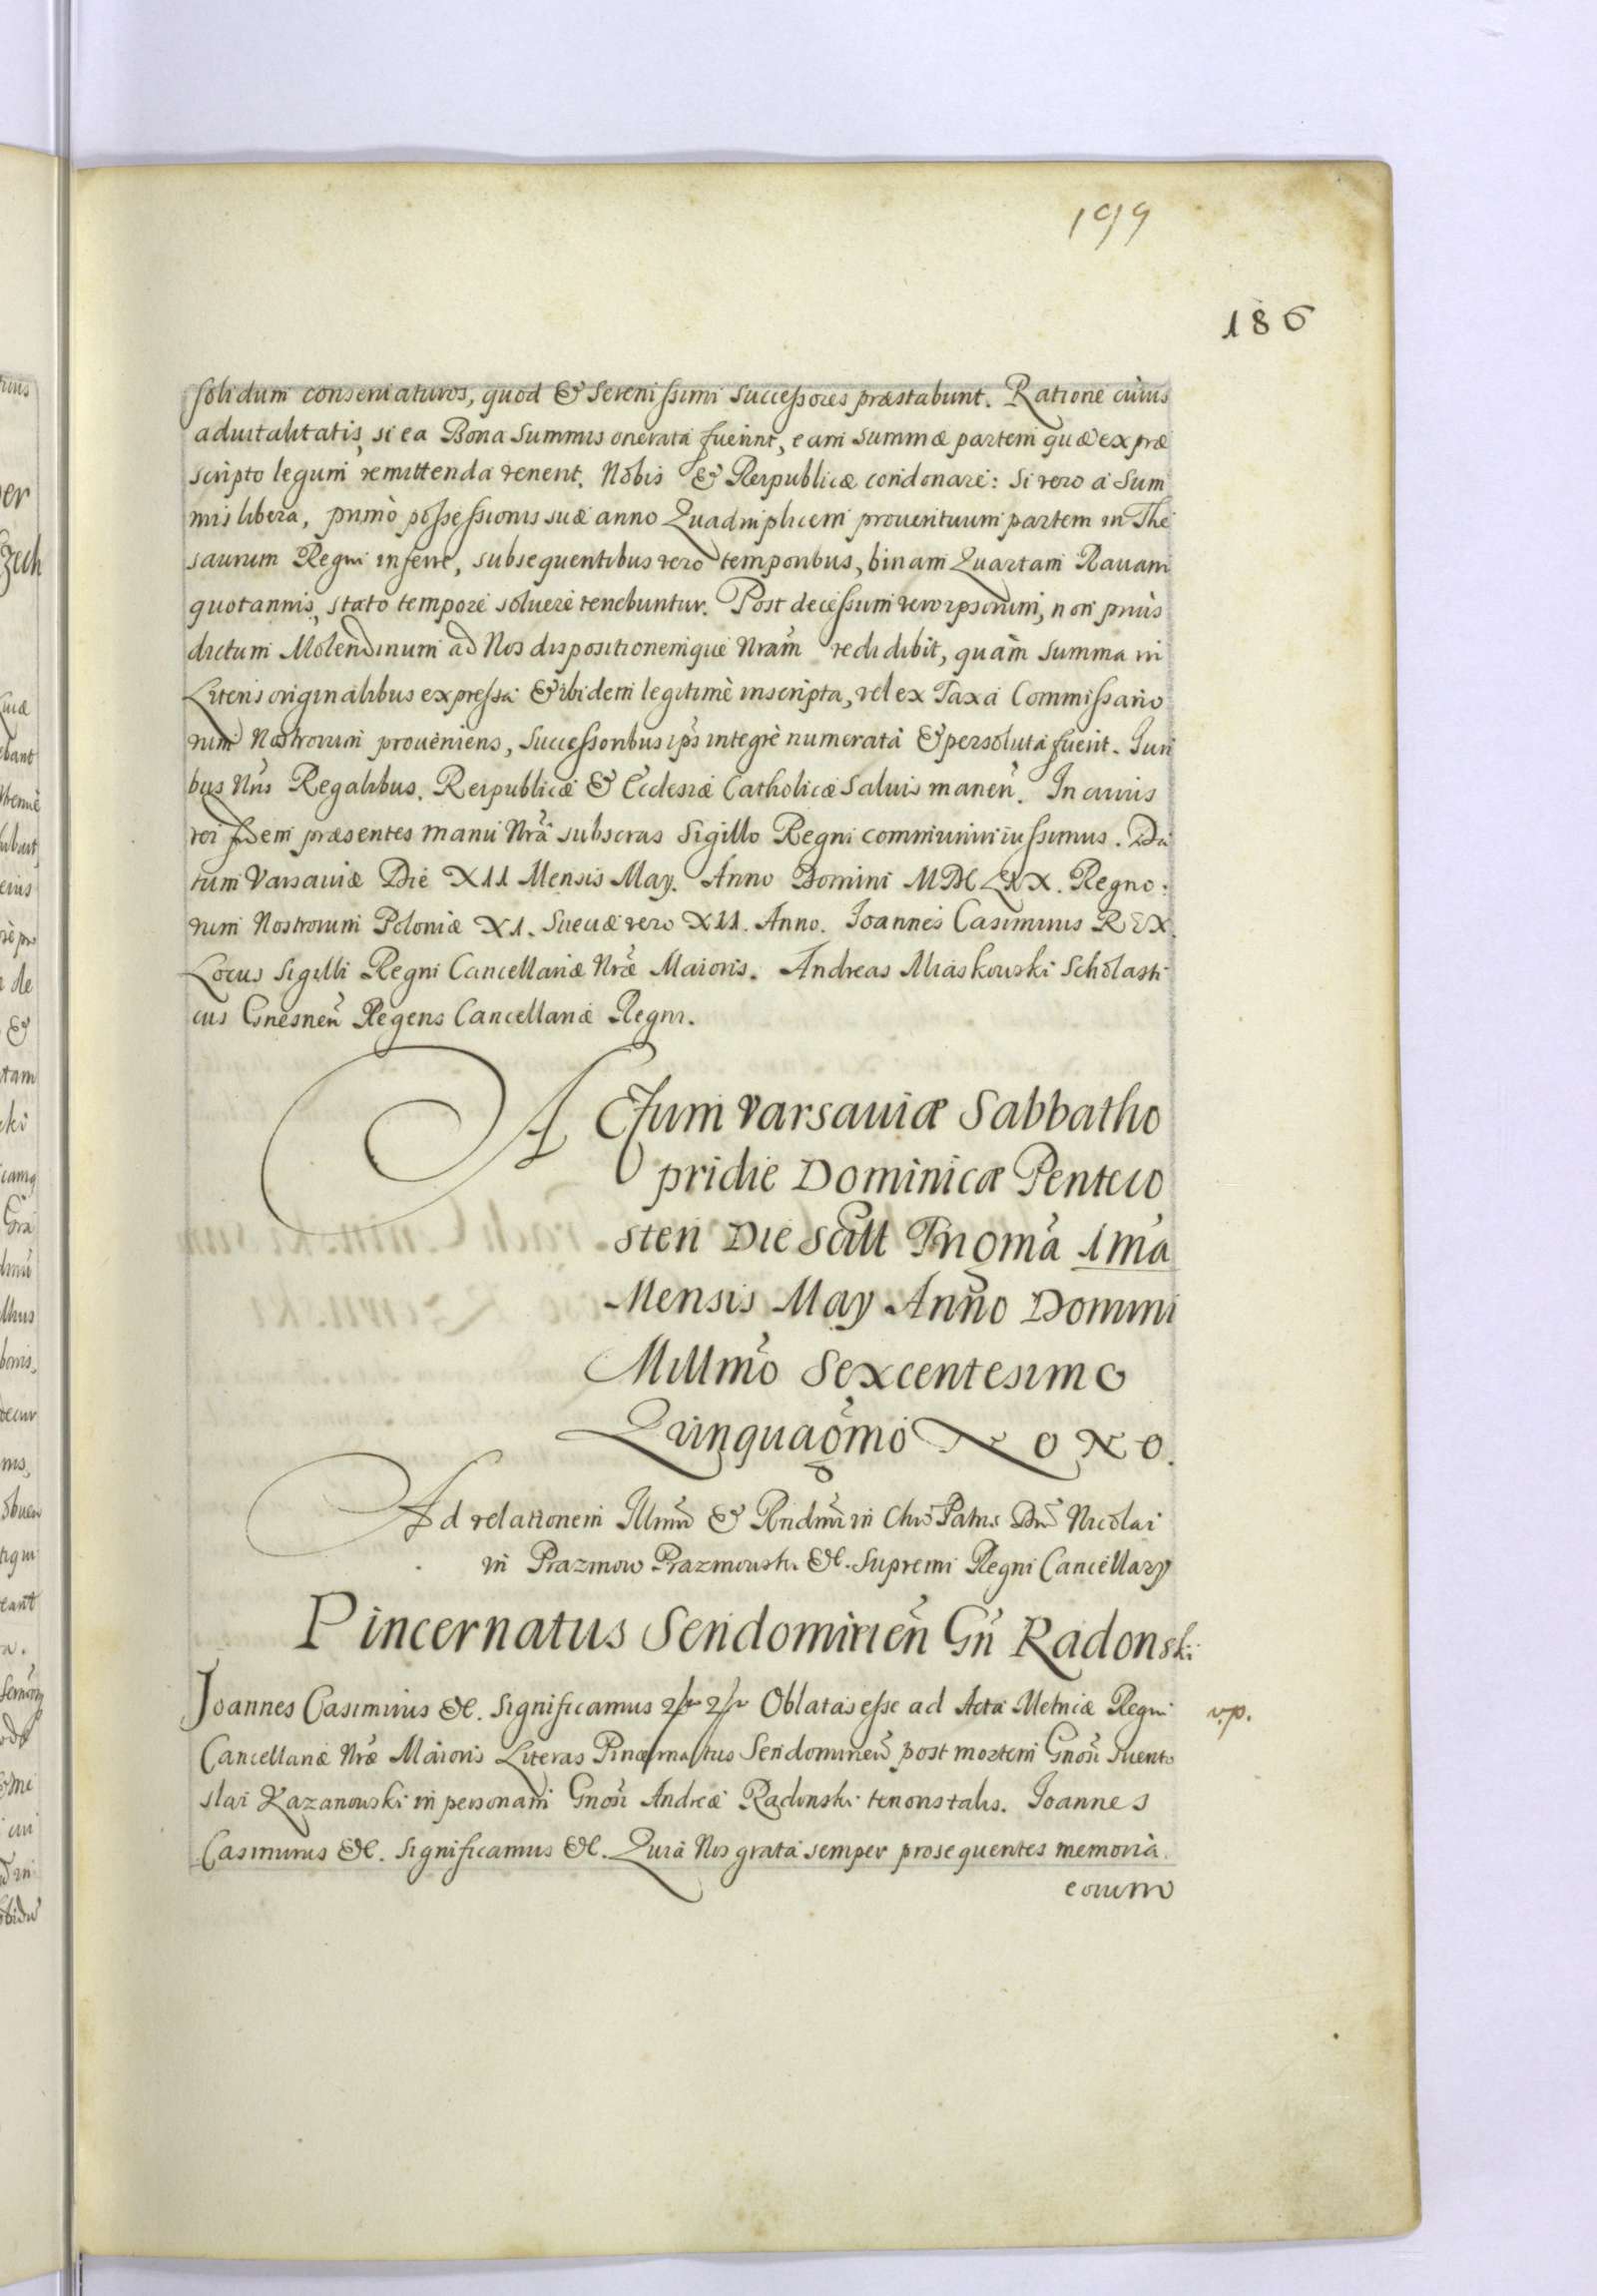 199
186
solidum conseruaturos, quod & Serenissimi Successores præstabunt. Ratione cuius
aduitalitatis, si ea Bona Summis onerata fuerint, eam summæ partem quæ ex præ
scripto legum remittenda venerit. Nobis & Reipublicæ condonare: Si vero a Sum
mis libera, primò possessionis suæ anno Quadruplicem prouentuum partem in The
saurum Regni inferre, subsequentibus vero temporibus, binam Quartam Rauam
quotannis, stato tempore soluere tenebuntur. Post decessum vero ipsorum, non prius
dictum Molendinum ad Nos dispositionemque Nram redi dibit, quàm summa in
Literis originalibus expressa & ibidem legitimè inscripta, vel ex Taxa Commissario
rum Nostrorum proueniens, Successoribus ips integrè numerata & persoluta fuerit. Juri
bus Nris Regalibus. Reipublicæ & Ecclesiæ Catholicæ Saluis manen. In cuius
rei fidem præsentes manu Nra subscras Sigillo Regni communiri iussimus. Da
tum Varsauiæ Die XII Mensis May. Anno Domini MDCLIX. Regno:
rum Nostrorum Poloniæ XI. Sueciæ vero XII. Anno. Joannes Casimirus REX.
Locus Sigilli Regni Cancellariæ Nræ Maioris. Andreas Miaskowski Scholasti
cus Gnesnen Regens Cancellariæ Regni.
ACtum Varsauiæ Sabbatho
pridie Dominicæ Penteco
sten Die scilt Trigoma 1ma
Mensis May Anno Domini
Millmo Sexcentesimo
Quinquagomo NONO.
Ad relationem Illmi & Rndmi in Chro Patris Dni Nicolai
in Prazmow Prazmowski &c. Supremi Regni Cancellary
Pincernatus Sendomirien Gn Radonski
Joannes Casimirus &c. Significamus &c Oblatas esse ad Acta Metricæ Regni
v.p.
Cancellariæ Nræ Maioris Literas Pincernatus Sendomirien post mortem Gnosi Suento
slai Kazanowski in personam Gnosi Andreæ Radonski tenoris talis. Joannes
Casimirus &c. Significamus &c. Quia Nos grata semper prosequentes memoria
eorum